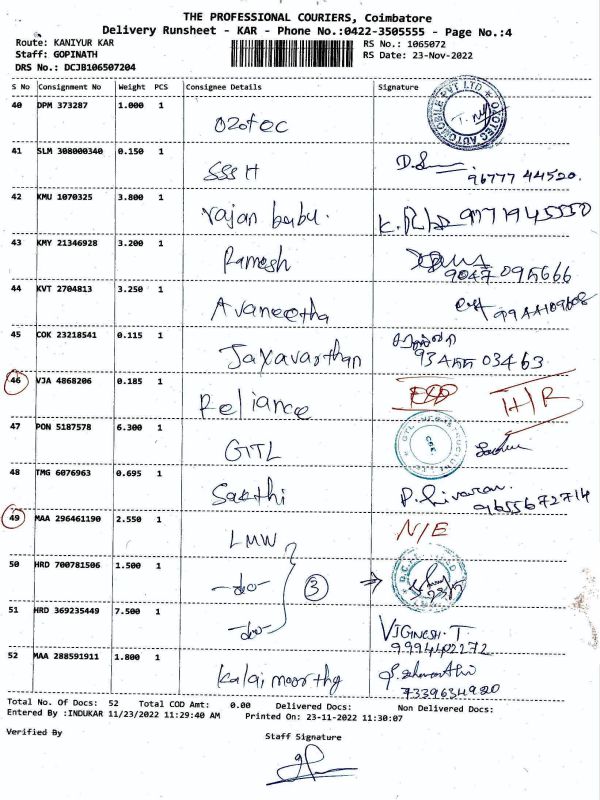 THE PROFESSIONAL COURIERS, Coimbatore
Delivery Runsheet - KAR - Phone No.:0422-3505555 - Page No.:4
Route: KANIYUR KAR
RS No.: 1065072
Staff: GOPINATH
RS Date: 23-Nov-2022
DRS No.: DCJB106507204
S No Consignment No Weight PCS Consignee Details Signature
40 DPM 373287 1.000 1
OZOTEC
41 SLM 308000340 0.150 1
SSS H
96777 44520.
42 KMU 1070325 3.800 1
rajan babu.
43 KMY 21346928 3.200 1
Ramesh
9047 095666
44 KVT 2704813 3.250 1
Avaneetha
45 COK 23218541 0.115 1
Jayavarthan
93455 03463
46 VJA 4868206 0.185 1
Reliance
H/R
47 PON 5187578 6.300 1
GITL
48 TMG 6076963 0.695 1
Sakthi
9655672714
49 MAA 296461190 2.550 1
LMW
N/E
50 HRD 700781506 1.500 1
-do-
3
51 HRD 369235449 7.500 1
-do-
VIGINESH. T
9994402272
52 MAA 288591911 1.800 1
Kalaimoorthy
7339634920
Total No. Of Docs: 52 Total COD Amt: 0.00 Delivered Docs: Non Delivered Docs:
Entered By :INDUKAR 11/23/2022 11:29:40 AM Printed On: 23-11-2022 11:30:07
Verified By
Staff Signature